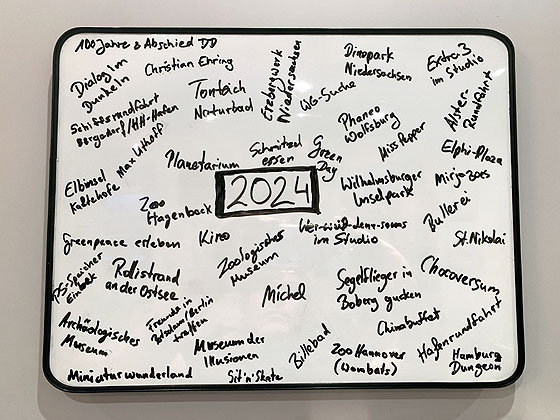 100 Jahre & Abschied DD
Dialog Im
Dunkeln
Christian Ehring
Erzbergwerk
Niedersachsen
Dinopark
Niedersachsen
Extra 3
im Studio
Tonteich
Naturbad
WG-Suche
Schiffsrundfahrt
Bergedorf/HH-Hafen
Alster-
Rundfahrt
Phaneo
Wolfsburg
Miss Pepper
Max Uthoff
Planetarium
Schnitzel
essen
Green
Day
Elphi-Plaza
Elbinsel
Kaltehofe
Zoo
Hagenbeck
2024
Wilhelmsburger
Inselpark
Mirjozoes
Bullerei
Greenpeace erleben
Kino
Wer-weiß-denn-sowas
im Studio
St. Nikolai
Zoologisches
Museum
Speicher
Einbek
Rollistrand
an der Ostsee
Michel
Segelflieger in
Boberg gucken
Chocoversum
Archäologisches
Museum
Freunde in
Potsdam/Berlin
treffen
Museum der
Illusionen
Chinabuffet
Hafenrundfahrt
Billebad
Miniaturwunderland
Sit'n'Skate
Zoo Hannover
(Wombats)
Hamburg
Dungeon